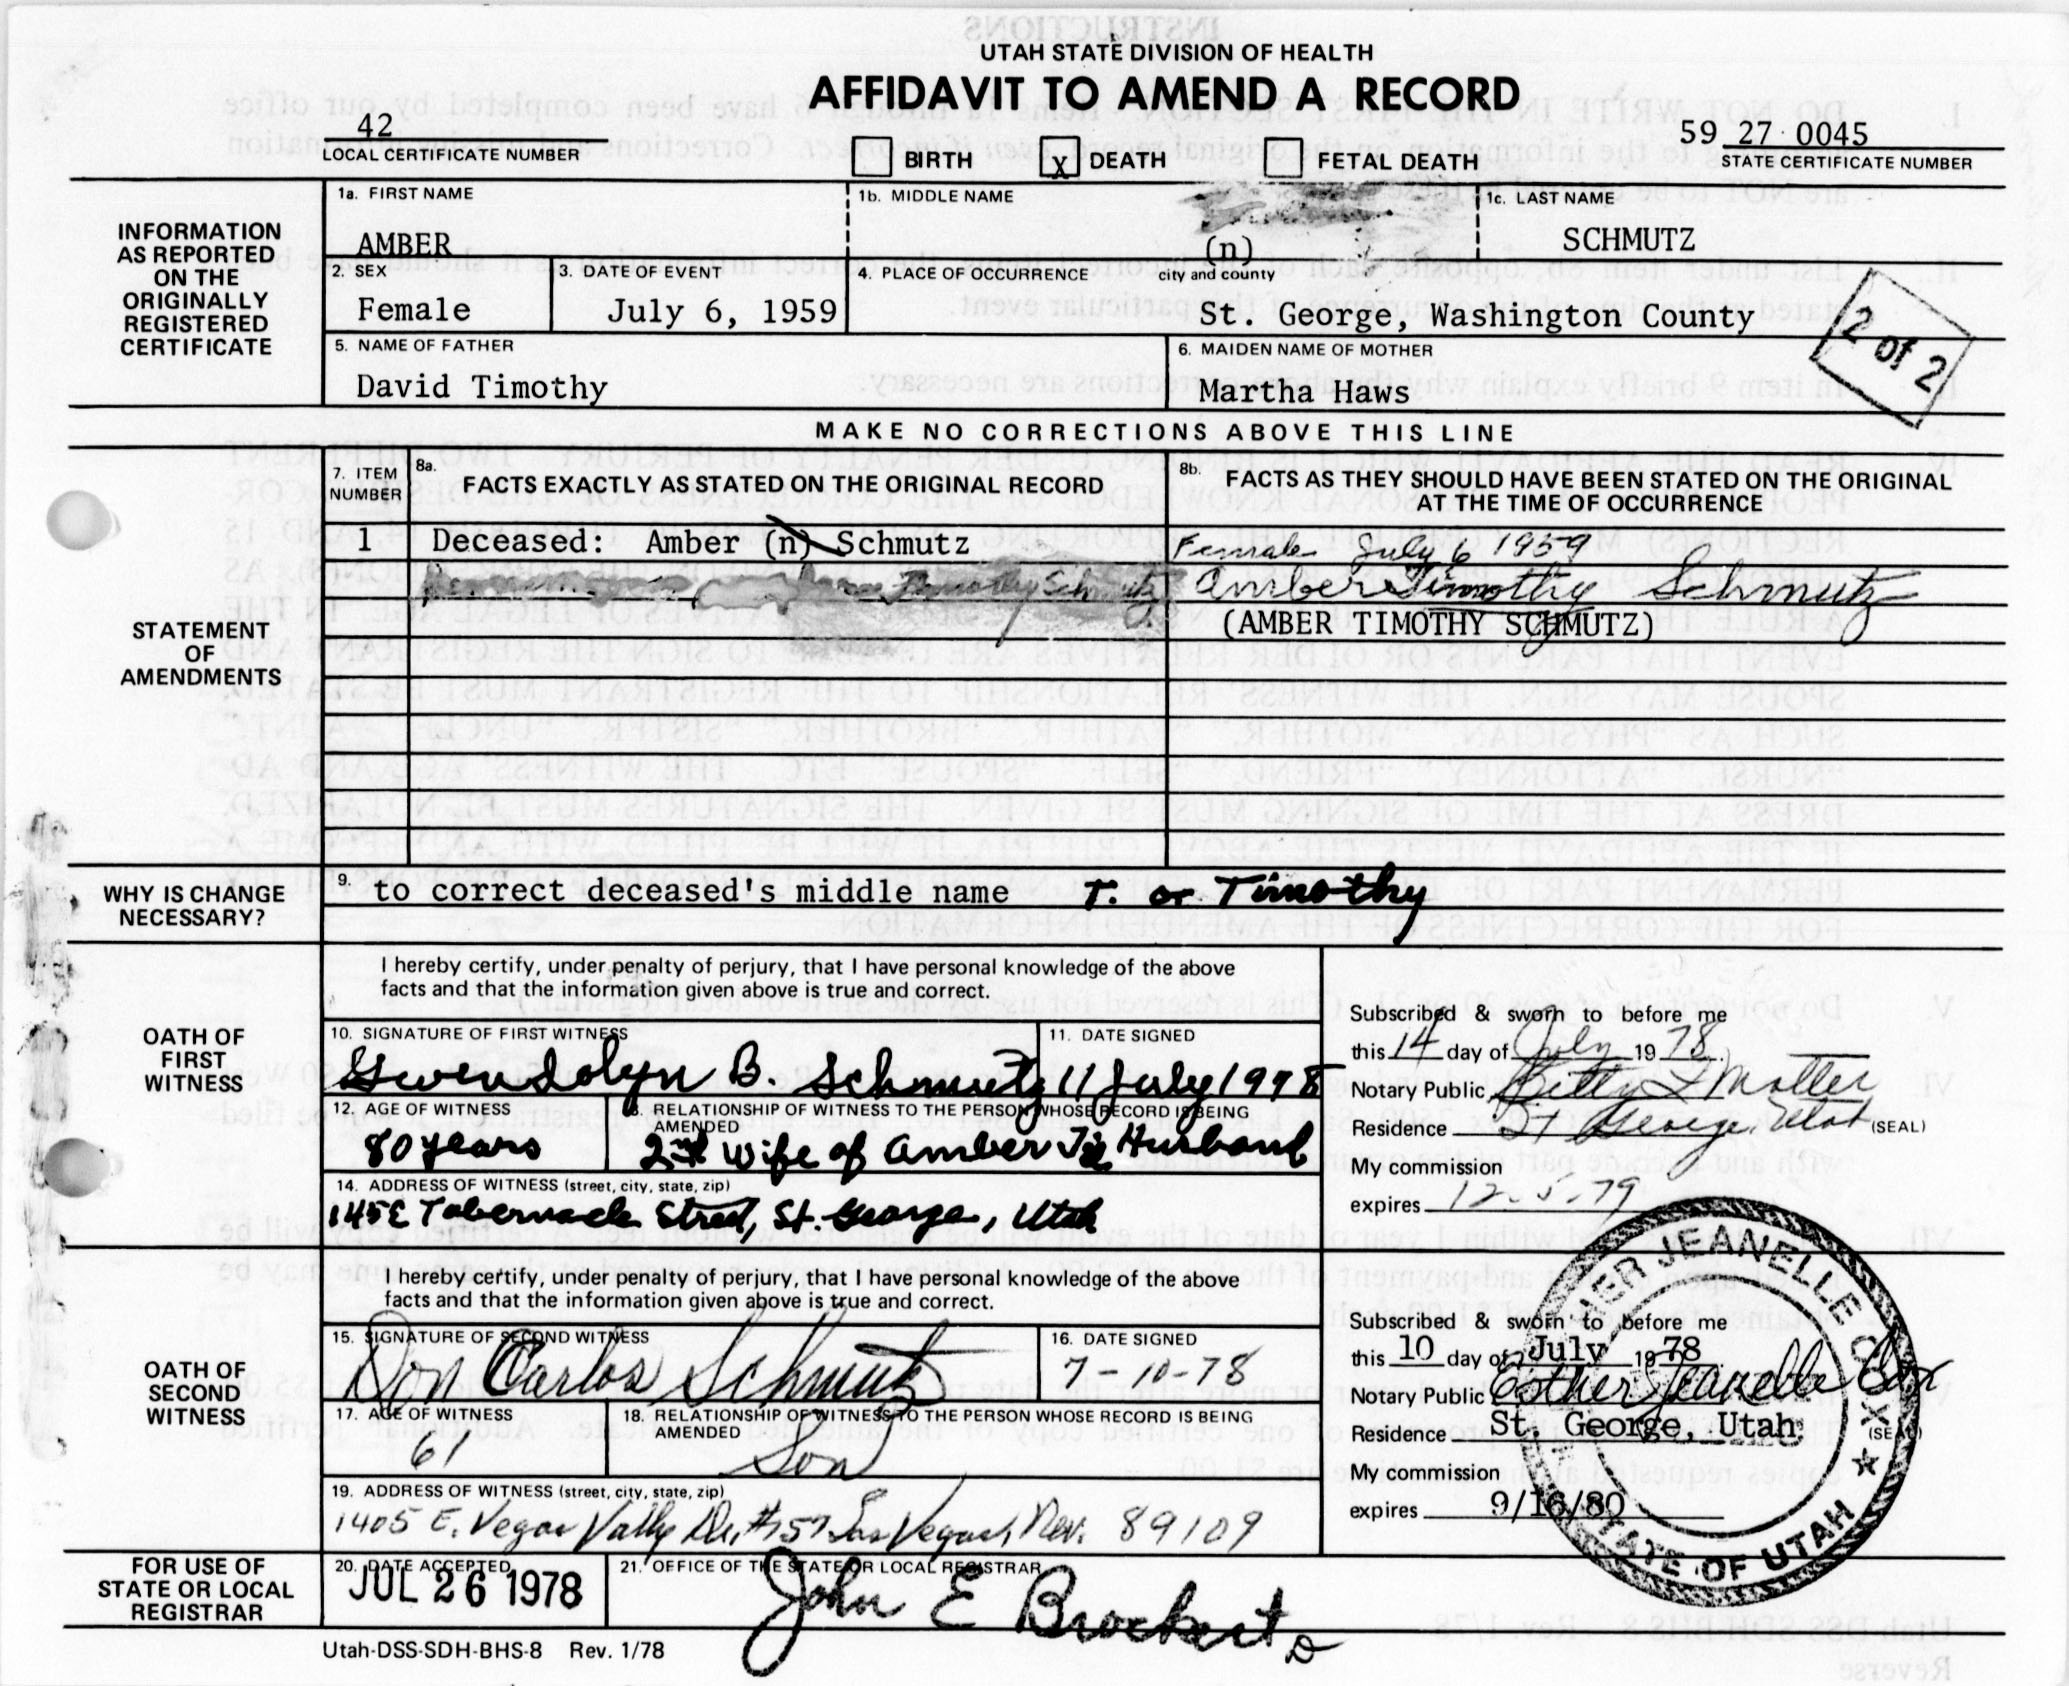 UTAH STATE DIVISION OF HEALTH
AFFIDAVIT TO AMEND A RECORD
42
LOCAL CERTIFICATE NUMBER
BIRTH
X DEATH
FETAL DEATH
59 27 0045
STATE CERTIFICATE NUMBER
INFORMATION
AS REPORTED
ON THE
ORIGINALLY
REGISTERED
CERTIFICATE
1a. FIRST NAME
AMBER
1b. MIDDLE NAME
(n)
1c. LAST NAME
SCHMUTZ
2. SEX
Female
3. DATE OF EVENT
July 6, 1959
4. PLACE OF OCCURRENCE city and county
St. George, Washington County
2 of 2
5. NAME OF FATHER
David Timothy
6. MAIDEN NAME OF MOTHER
Martha Haws
MAKE NO CORRECTIONS ABOVE THIS LINE
STATEMENT
OF
AMENDMENTS
7. ITEM
NUMBER
8a.
FACTS EXACTLY AS STATED ON THE ORIGINAL RECORD
8b.
FACTS AS THEY SHOULD HAVE BEEN STATED ON THE ORIGINAL
AT THE TIME OF OCCURRENCE
1
Deceased: Amber (n) Schmutz
Female July 6 1959
Timothy Schmutz
Amber Timothy Schmutz
(AMBER TIMOTHY SCHMUTZ)
WHY IS CHANGE
NECESSARY?
9. to correct deceased's middle name T. or Timothy
OATH OF
FIRST
WITNESS
I hereby certify, under penalty of perjury, that I have personal knowledge of the above
facts and that the information given above is true and correct.
10. SIGNATURE OF FIRST WITNESS
Gwendolyn B. Schmutz
11. DATE SIGNED
11 July 1978
12. AGE OF WITNESS
80 years
13. RELATIONSHIP OF WITNESS TO THE PERSON WHOSE RECORD IS BEING
AMENDED
2nd wife of Amber T's Husband
14. ADDRESS OF WITNESS (street, city, state, zip)
145 E Tabernacle Street, St. George, Utah
Subscribed & sworn to before me
this 14 day of July 19 78
Notary Public Betty L Motter
Residence St George, Utah (SEAL)
My commission
expires 12-5-79
OATH OF
SECOND
WITNESS
I hereby certify, under penalty of perjury, that I have personal knowledge of the above
facts and that the information given above is true and correct.
15. SIGNATURE OF SECOND WITNESS
Don Carlos Schmutz
16. DATE SIGNED
7-10-78
17. AGE OF WITNESS
61
18. RELATIONSHIP OF WITNESS TO THE PERSON WHOSE RECORD IS BEING
AMENDED
Son
19. ADDRESS OF WITNESS (street, city, state, zip)
1405 E. Vegas Vally Dr, #157 Las Vegas, Nev. 89109
Subscribed & sworn to before me
this 10 day of July 19 78
Notary Public Esther Jeanelle Cox
Residence St. George, Utah (SEAL)
My commission
expires 9/16/80
HER JEANELLE COX
STATE OF UTAH
FOR USE OF
STATE OR LOCAL
REGISTRAR
20. DATE ACCEPTED
JUL 26 1978
21. OFFICE OF THE STATE OR LOCAL REGISTRAR
John E Brockert
Utah-DSS-SDH-BHS-8 Rev. 1/78